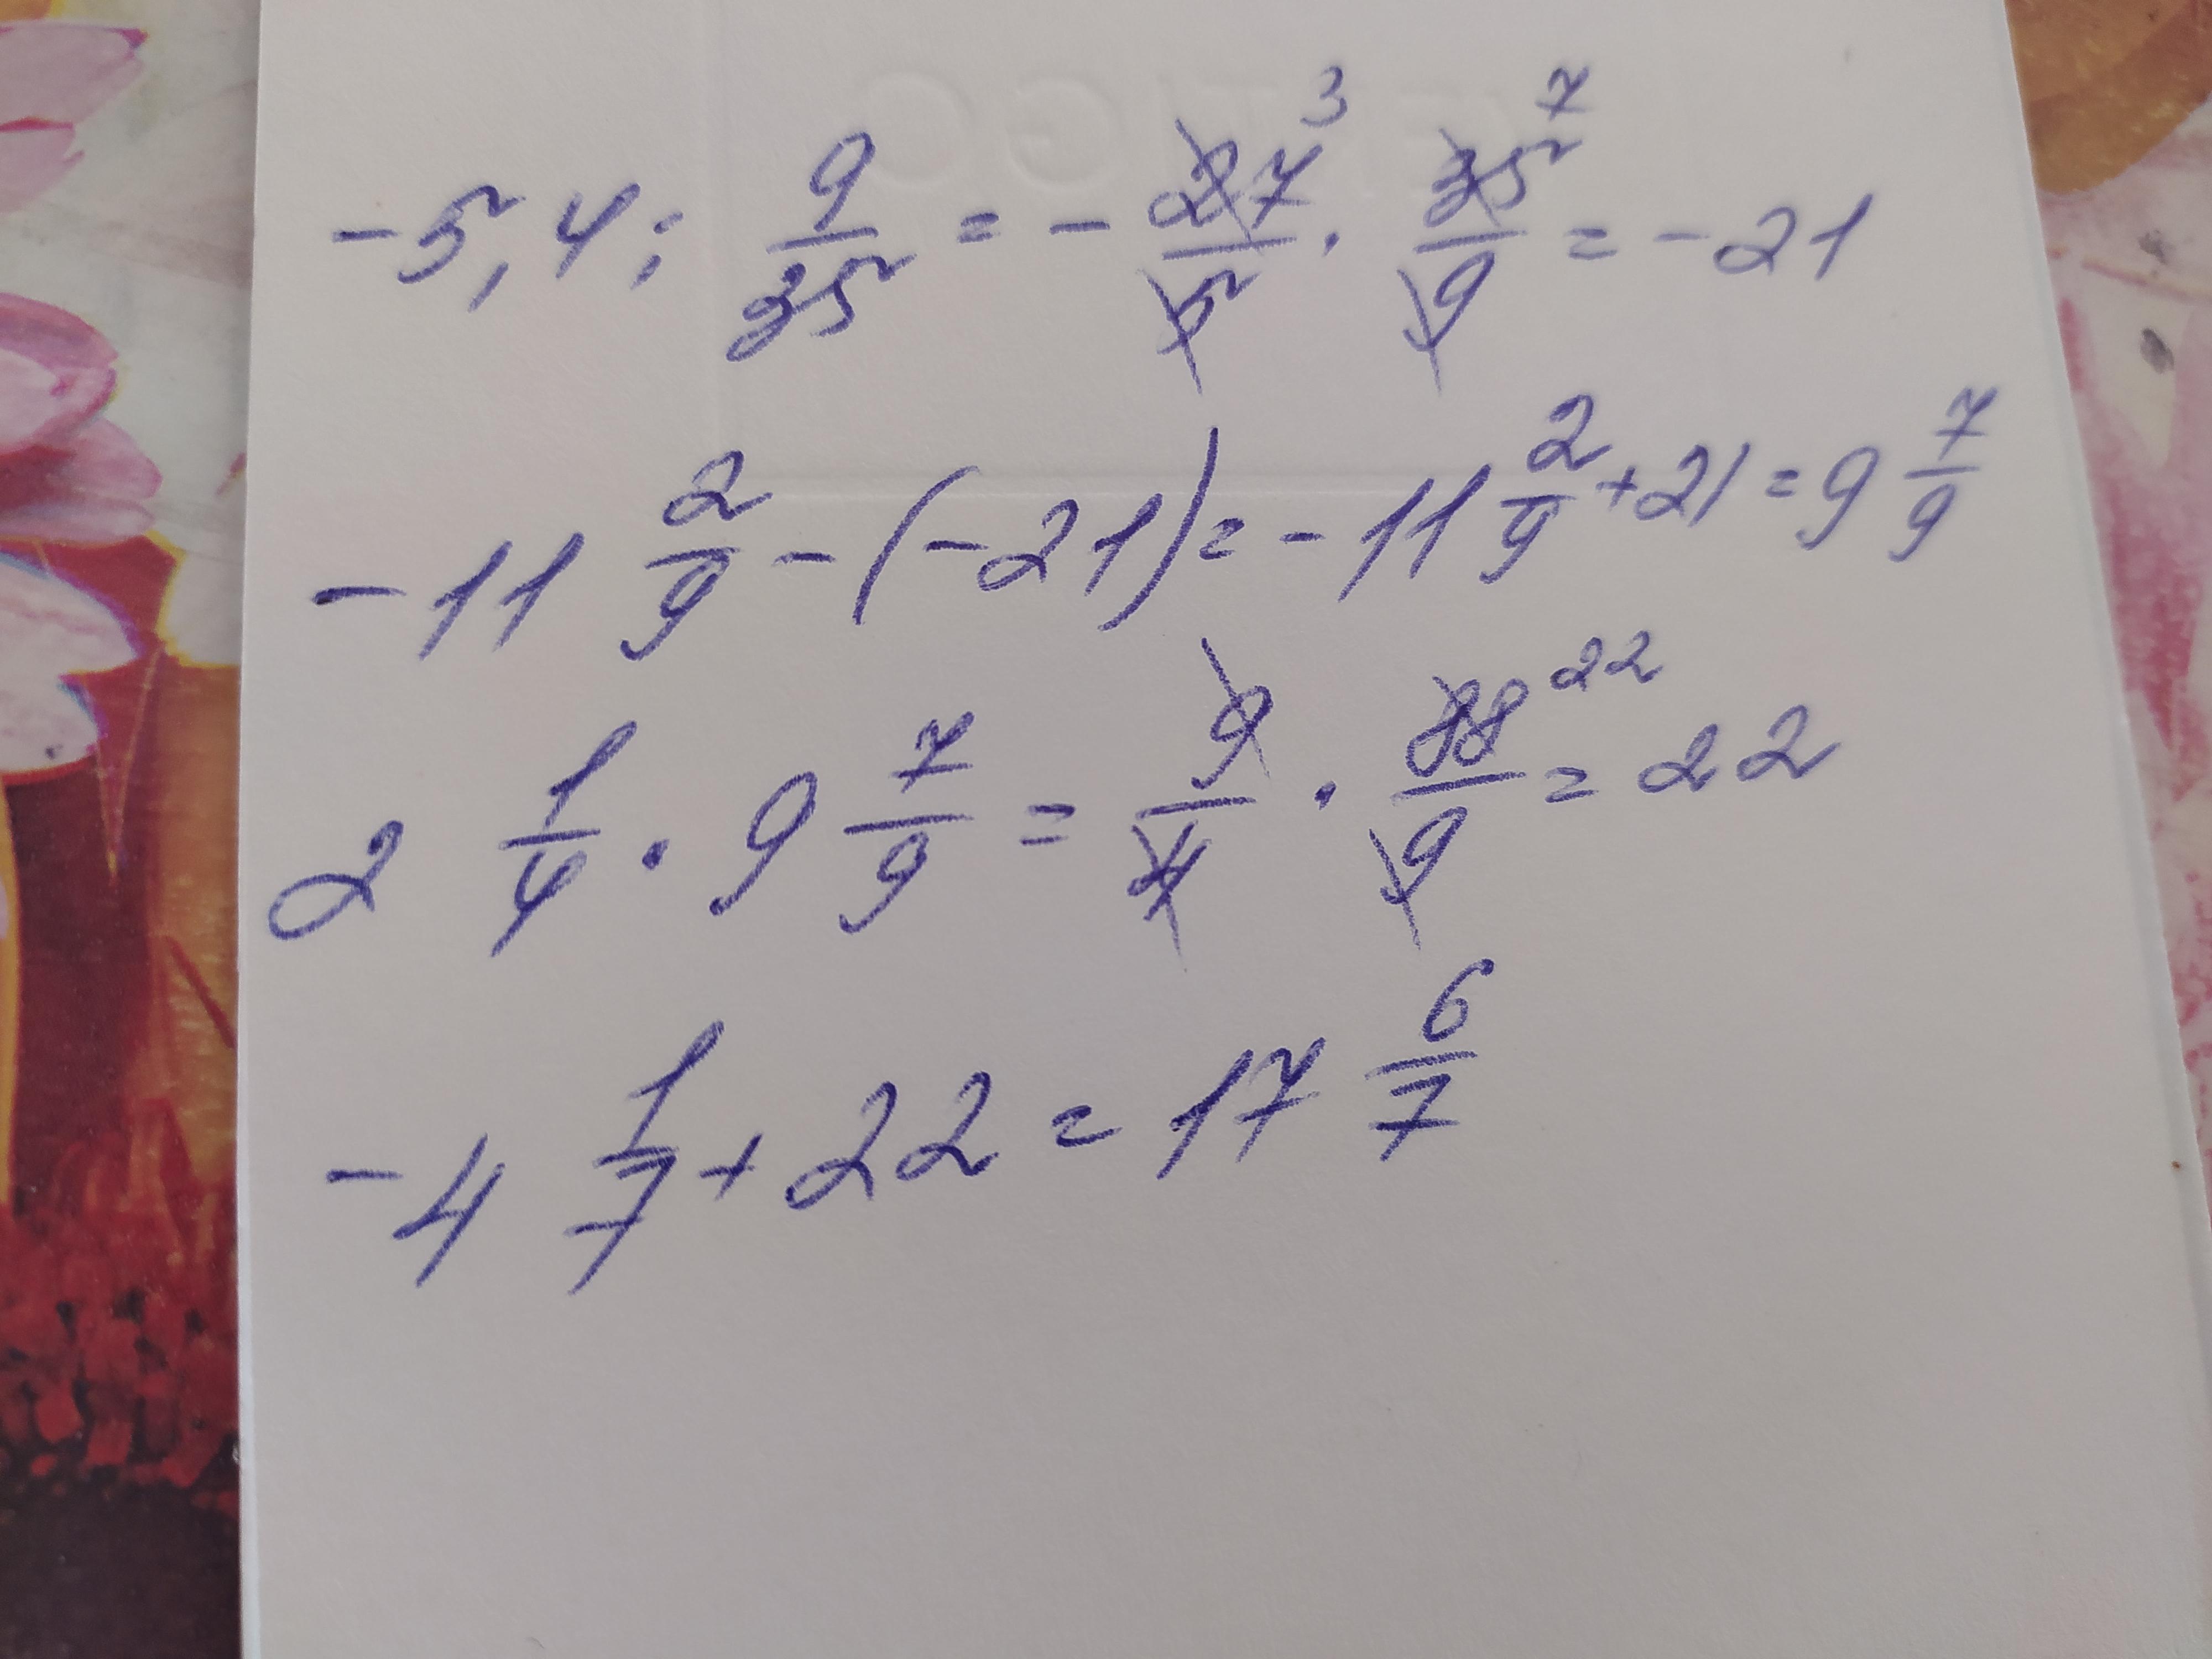 -5,4 : 9/35 = - 27/5 ³ · 35/9 ⁷ = -21
-11 2/9 - (-21) = -11 2/9 + 21 = 9 7/9
2 1/4 · 9 7/9 = 9/4 · 88/9 ²² = 22
-4 1/7 + 22 = 17 6/7